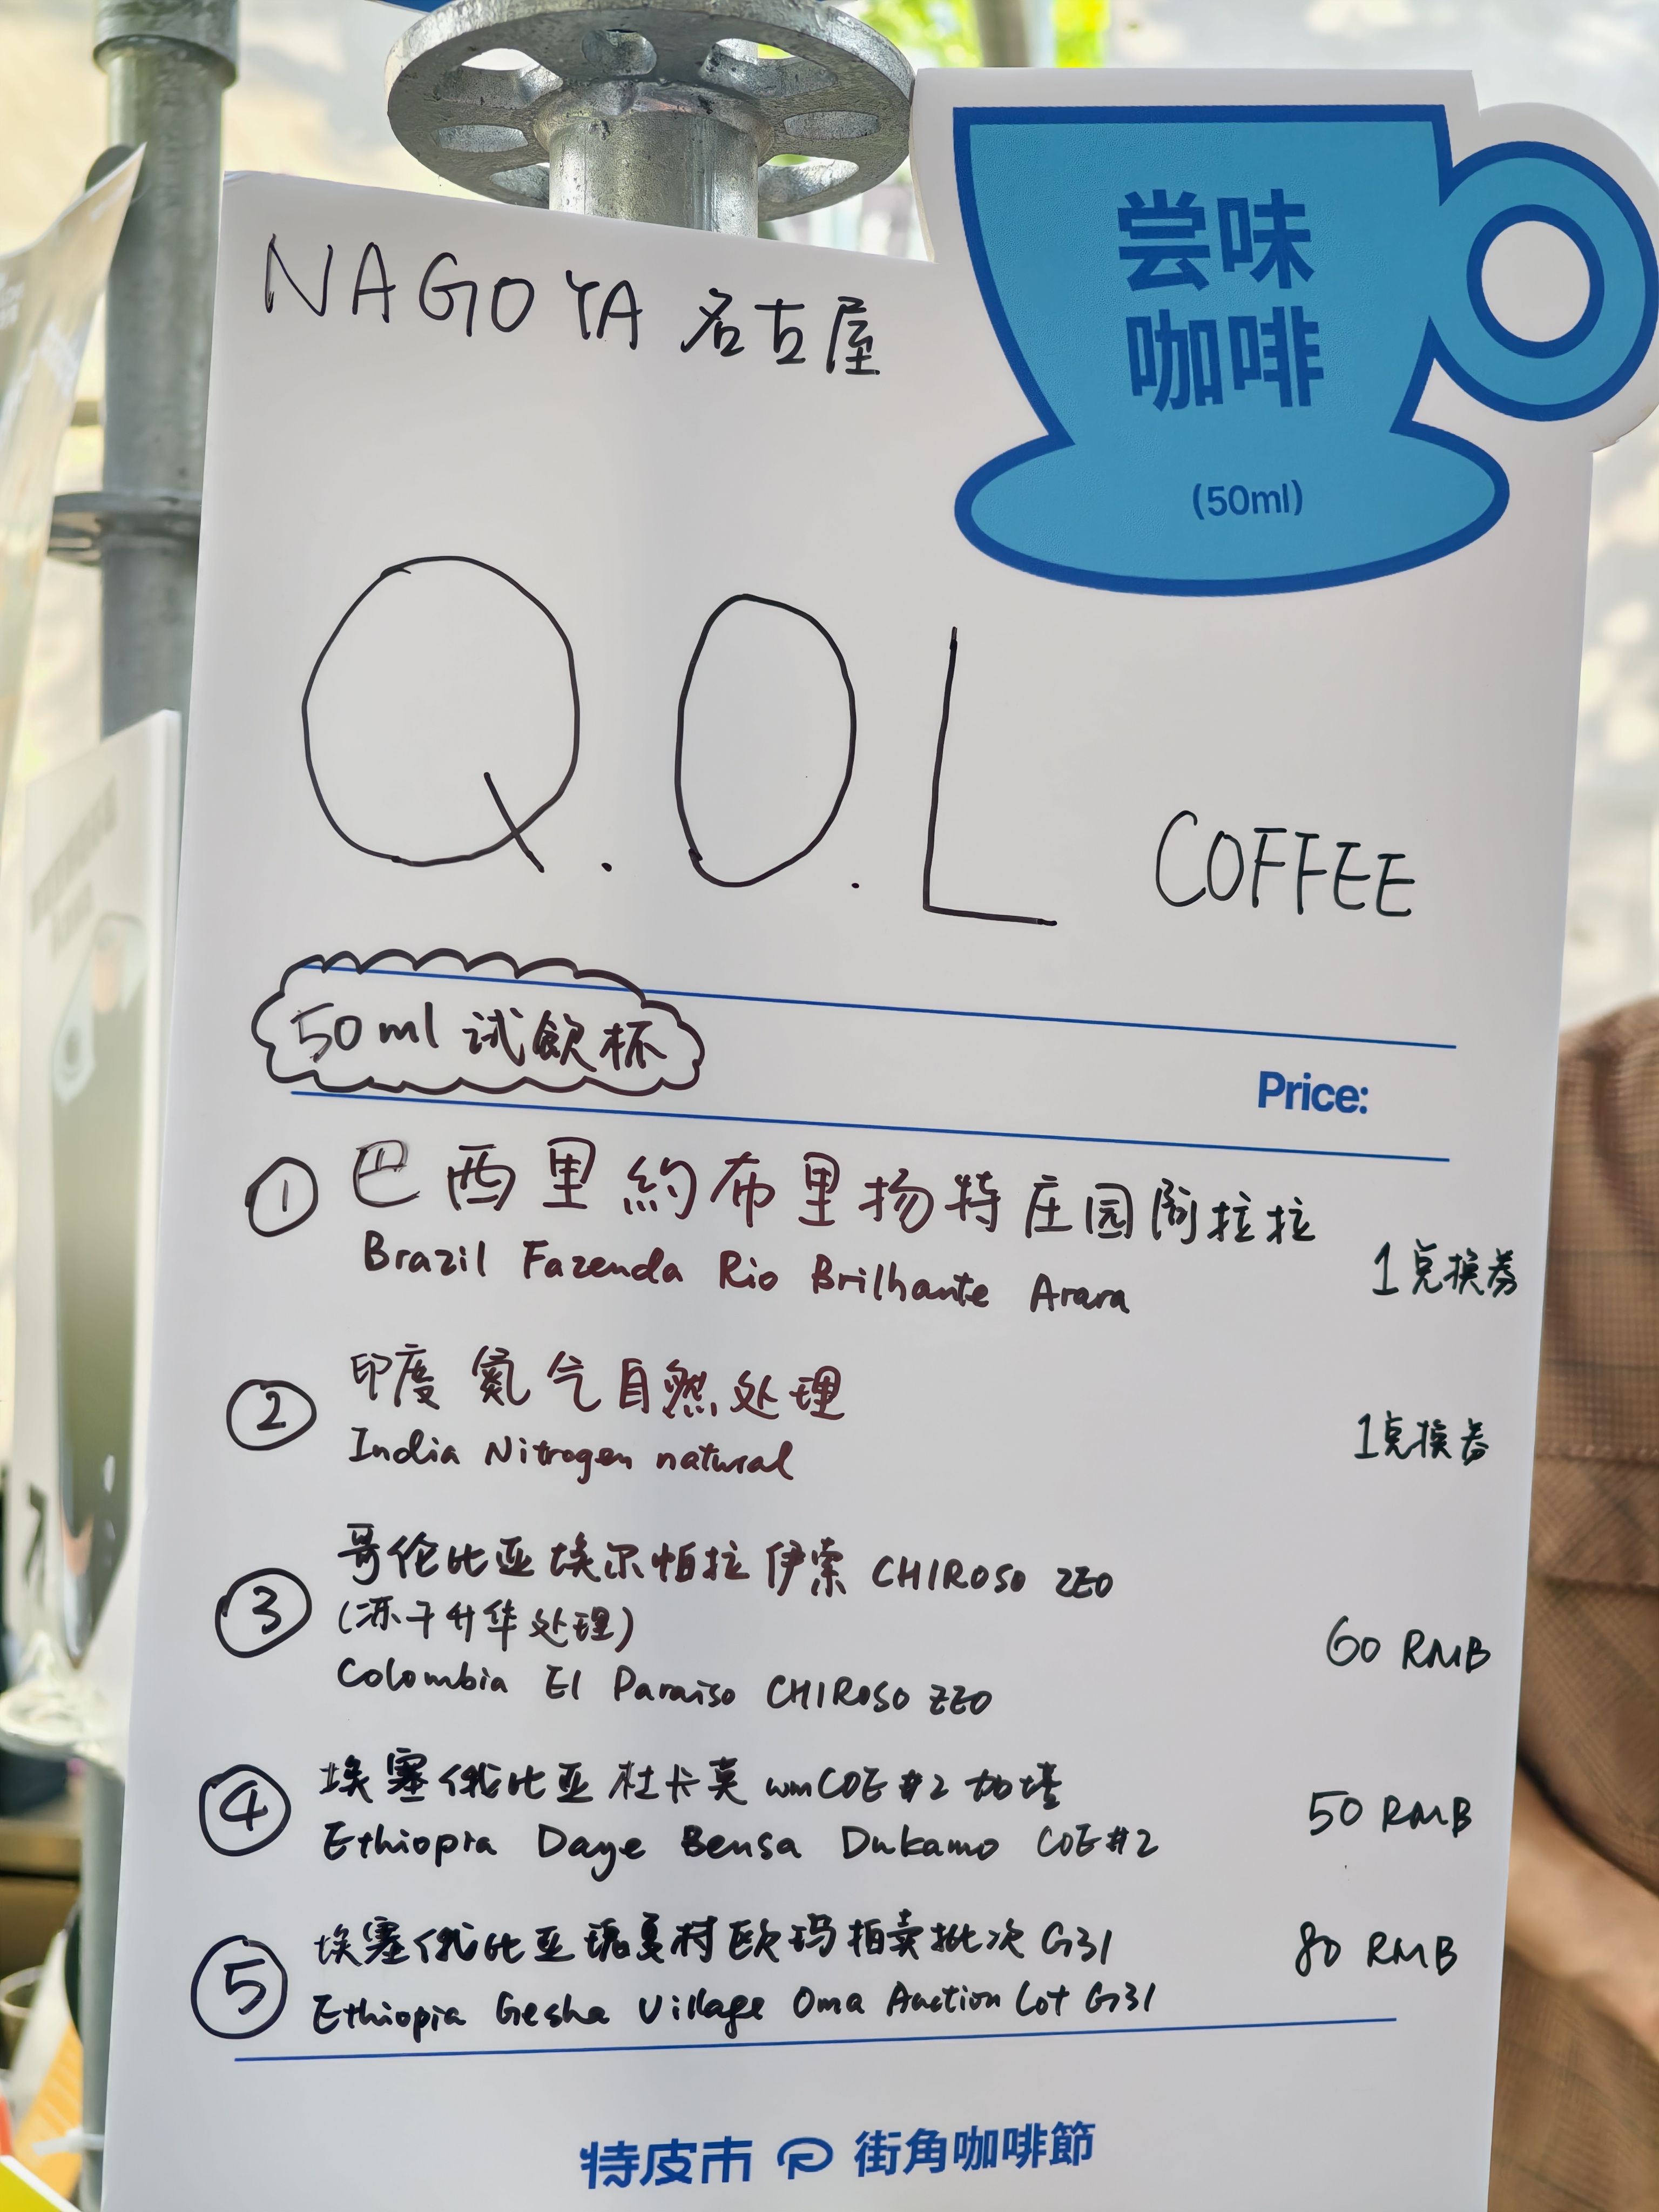 NAGOYA 名古屋
尝味
咖啡
(50ml)
Q.O.L COFFEE
50ml 试飲杯
Price:
① 巴西里約布里扬特庄园阿拉拉
Brazil Fazenda Rio Brilhante Arara
1兑换券
② 印度 氮气自然处理
India Nitrogen natural
1兑换券
③ 哥伦比亚埃尔帕拉伊索 CHIROSO ZEO
(冻干升华处理)
Colombia El Paraiso CHIROSO ZEO
60 RMB
④ 埃塞俄比亚 杜卡莫 COE #2
Ethiopia Daye Bensa Dukamo COE #2
50 RMB
⑤ 埃塞俄比亚瑰夏村欧玛拍卖批次 G31
Ethiopia Gesha Village Oma Auction Lot G31
80 RMB
特皮市 街角咖啡節